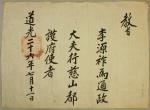 敎旨
李源祚爲通政
大夫行慈山都
護府使者
道光二十六年七月十一日